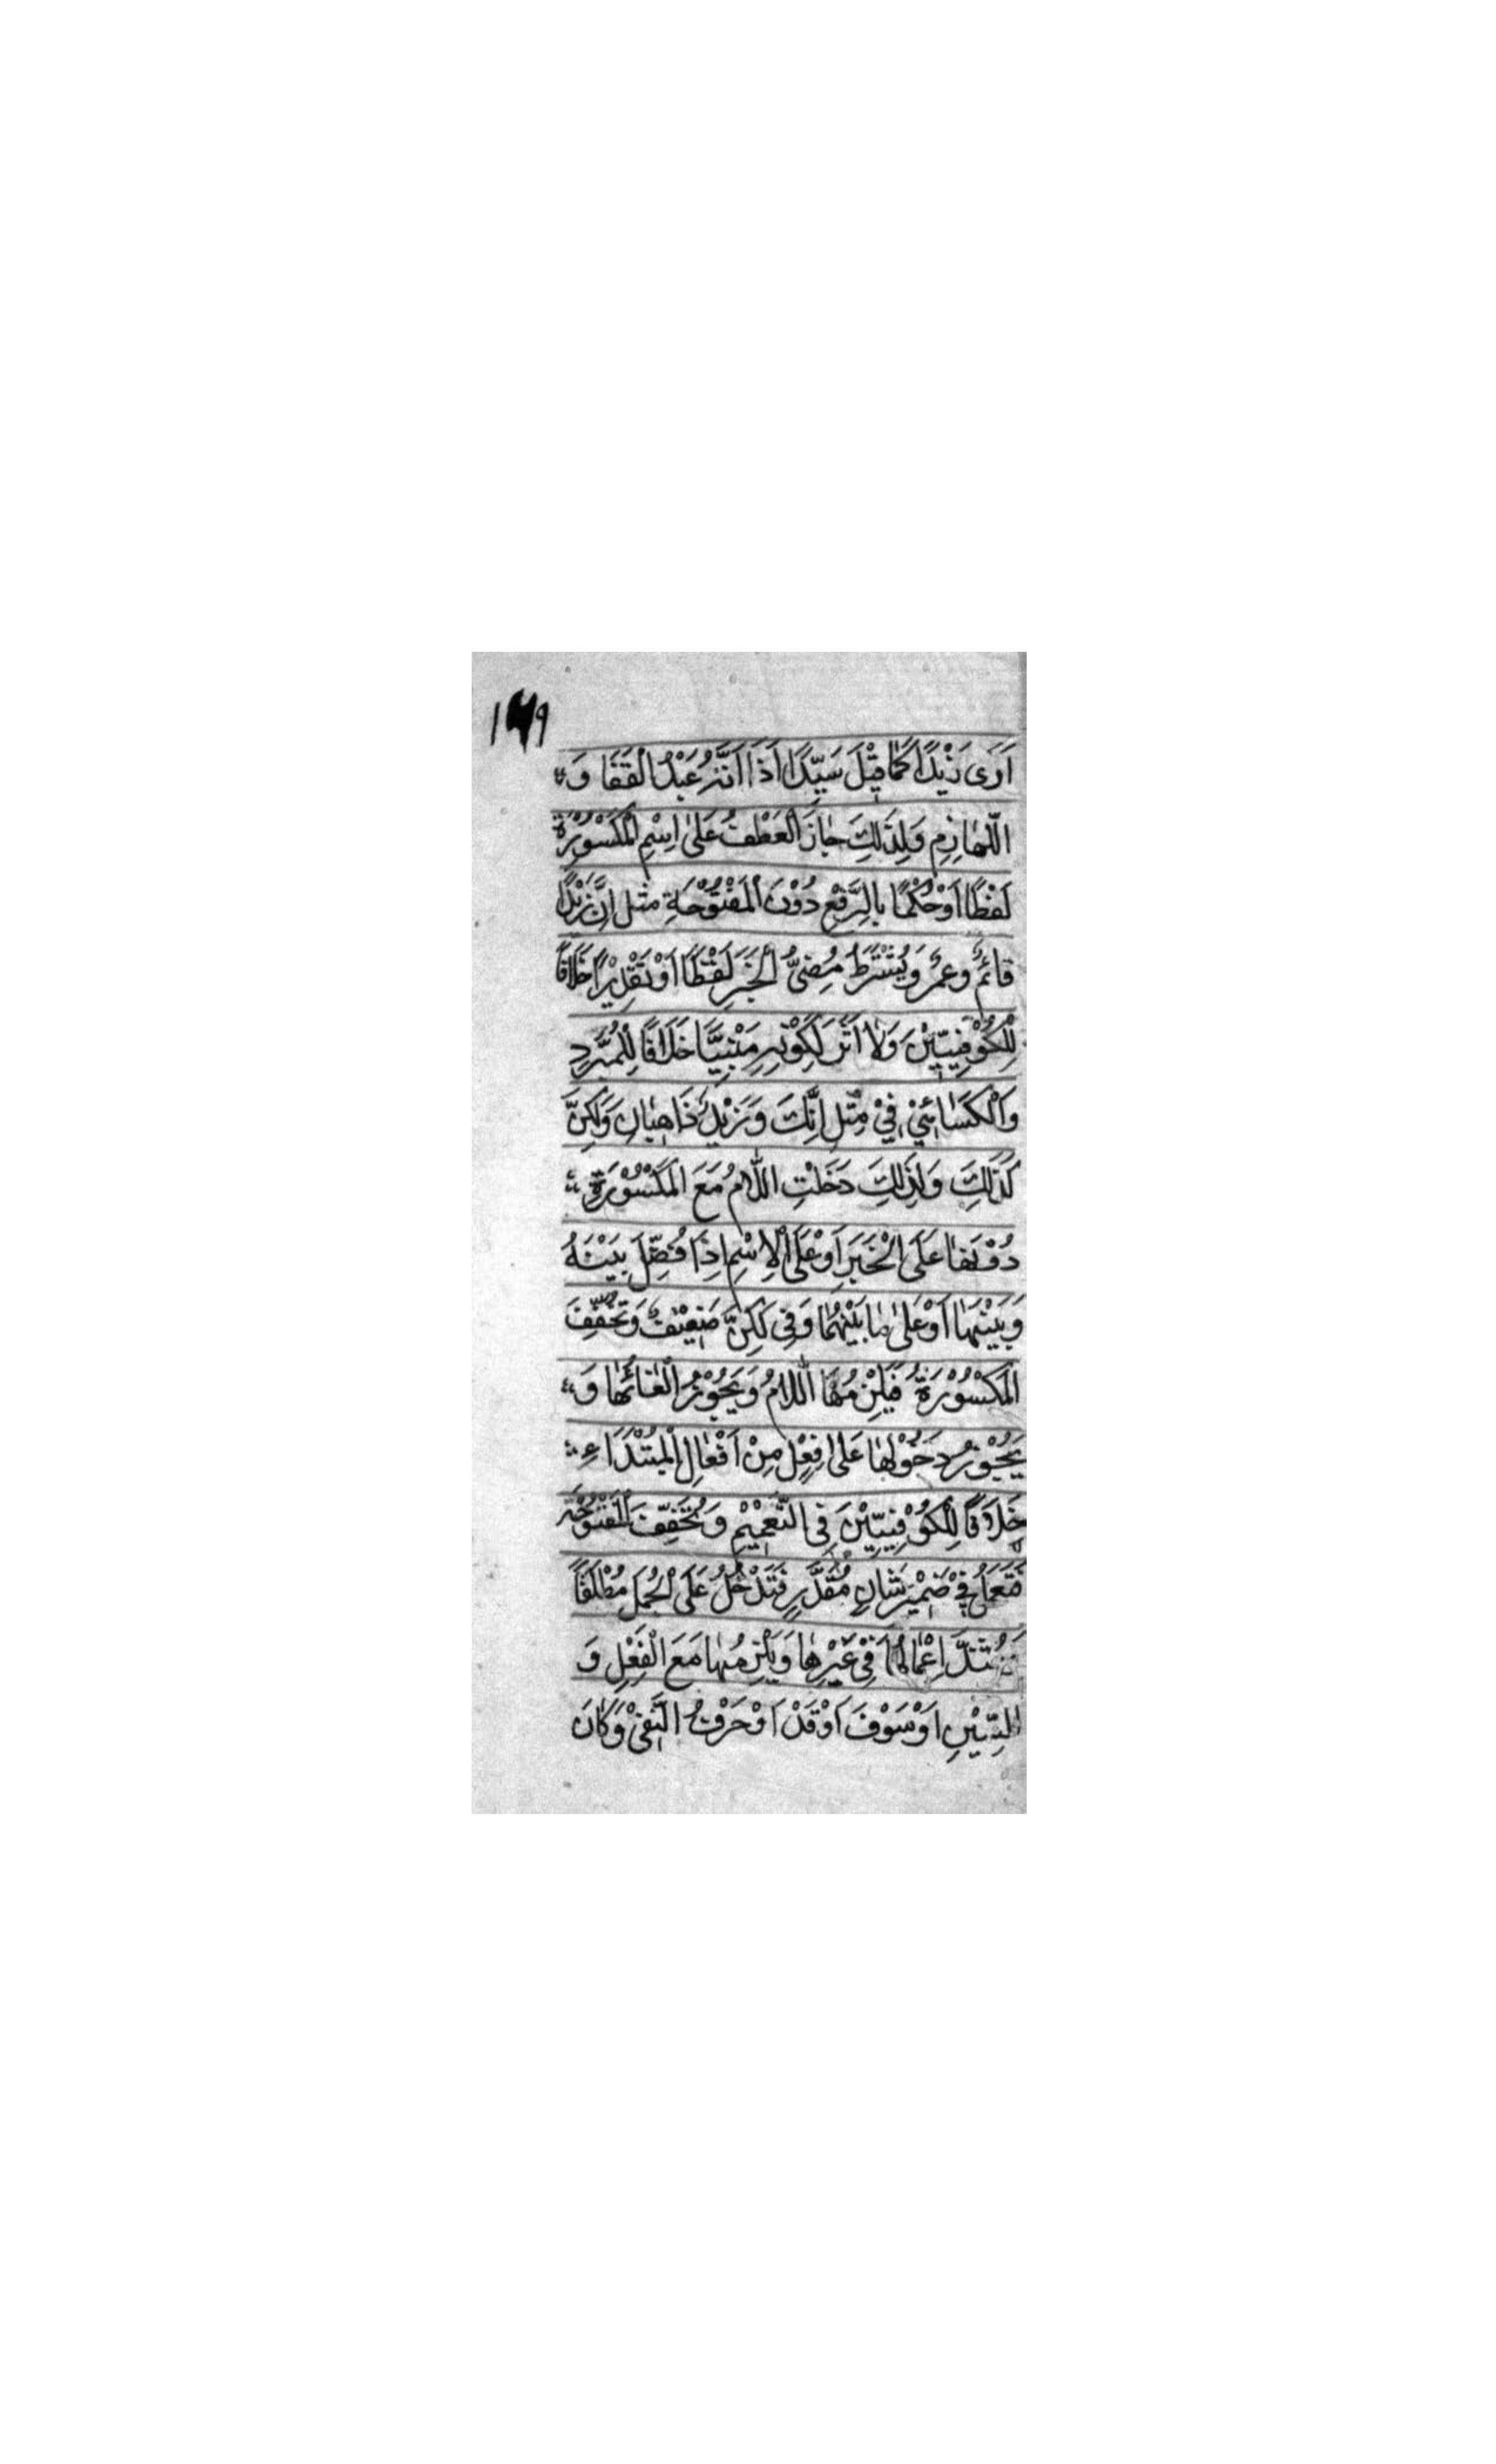 أَرَىٰ زَيْدًا كَمَا قِيْلَ سَيِّدًا أَذَا أَنَّهُ عَبْدُ الْقَفَا وَ
اللَّهَازِمِ وَلِذَلِكَ جَازَ الْعَطْفُ عَلَىٰ اِسْمِ الْمَكْسُوْرَةِ
لَفْظًا أَوْ حُكْمًا بِالرَّفْعِ دُوْنَ الْمَفْتُوْحَةِ مثل إِنَّ زَيْدًا
قائمٌ وعمرٌ وَيُشْتَرَطُ مُضِيُّ الْخَبَرِ لَفْظًا أَوْ تَقْدِيْرًا خَلَافًا
لِلْكُوْفِيِّيْنَ وَلَا أَثَرَ لِكَوْنِهِ مَبْنِيًّا خَلَافًا لِلْمُبَرَّدِ
وَالْكَسَائِيْ فِيْ مِثْلِ إِنَّكَ وَزَيْدٌ ذَاهِبَانِ وَلَكِنَّ
كَذَلِكَ وَلِذَلِكَ دَخَلَتِ اللَّامُ مَعَ الْمَكْسُوْرَةِ
دُوْنَهَا عَلَى الْخَبَرِ أَوْ عَلَى الْاِسْمِ إِذَا فُصِّلَ بَيْنَهُ
وَبَيْنَهَا أَوْ عَلَىٰ مَا بَيْنَهُمَا وَفِي لَكِنَّ ضَعِيْفٌ وَتُخَفَّفُ
الْمَكْسُوْرَةُ فَيَلْزِمُهَا اللَّامُ وَيَجُوْزُ الْغَائُهَا وَ
يَجُوْزُ دَخُوْلُهَا عَلَىٰ فِعْلٍ مِنْ أَفْعَالِ الْمُبْتَدَاءِ
خَلَافًا لِلْكُوْفِيِّيْنَ فِي التَّعْمِيْمِ وَتُخَفَّفُ الْمَفْتُوْحَةُ
فَتَعْمَلُ فِيْ ضَمِيْرِ شَانٍ مُقَدَّرٍ فَتَدْخُلُ عَلَى الْجُمَلِ مُطْلَقًا
وَشَذَّ اِعْمَالُهَا فِيْ غَيْرِهَا وَيَلْزِمُهَا مَعَ الْفِعْلِ وَ
السِّيْنِ أَوْ سَوْفَ أَوْ قَدْ أَوْ حَرْفُ النَّفِيْ وَكَانَ